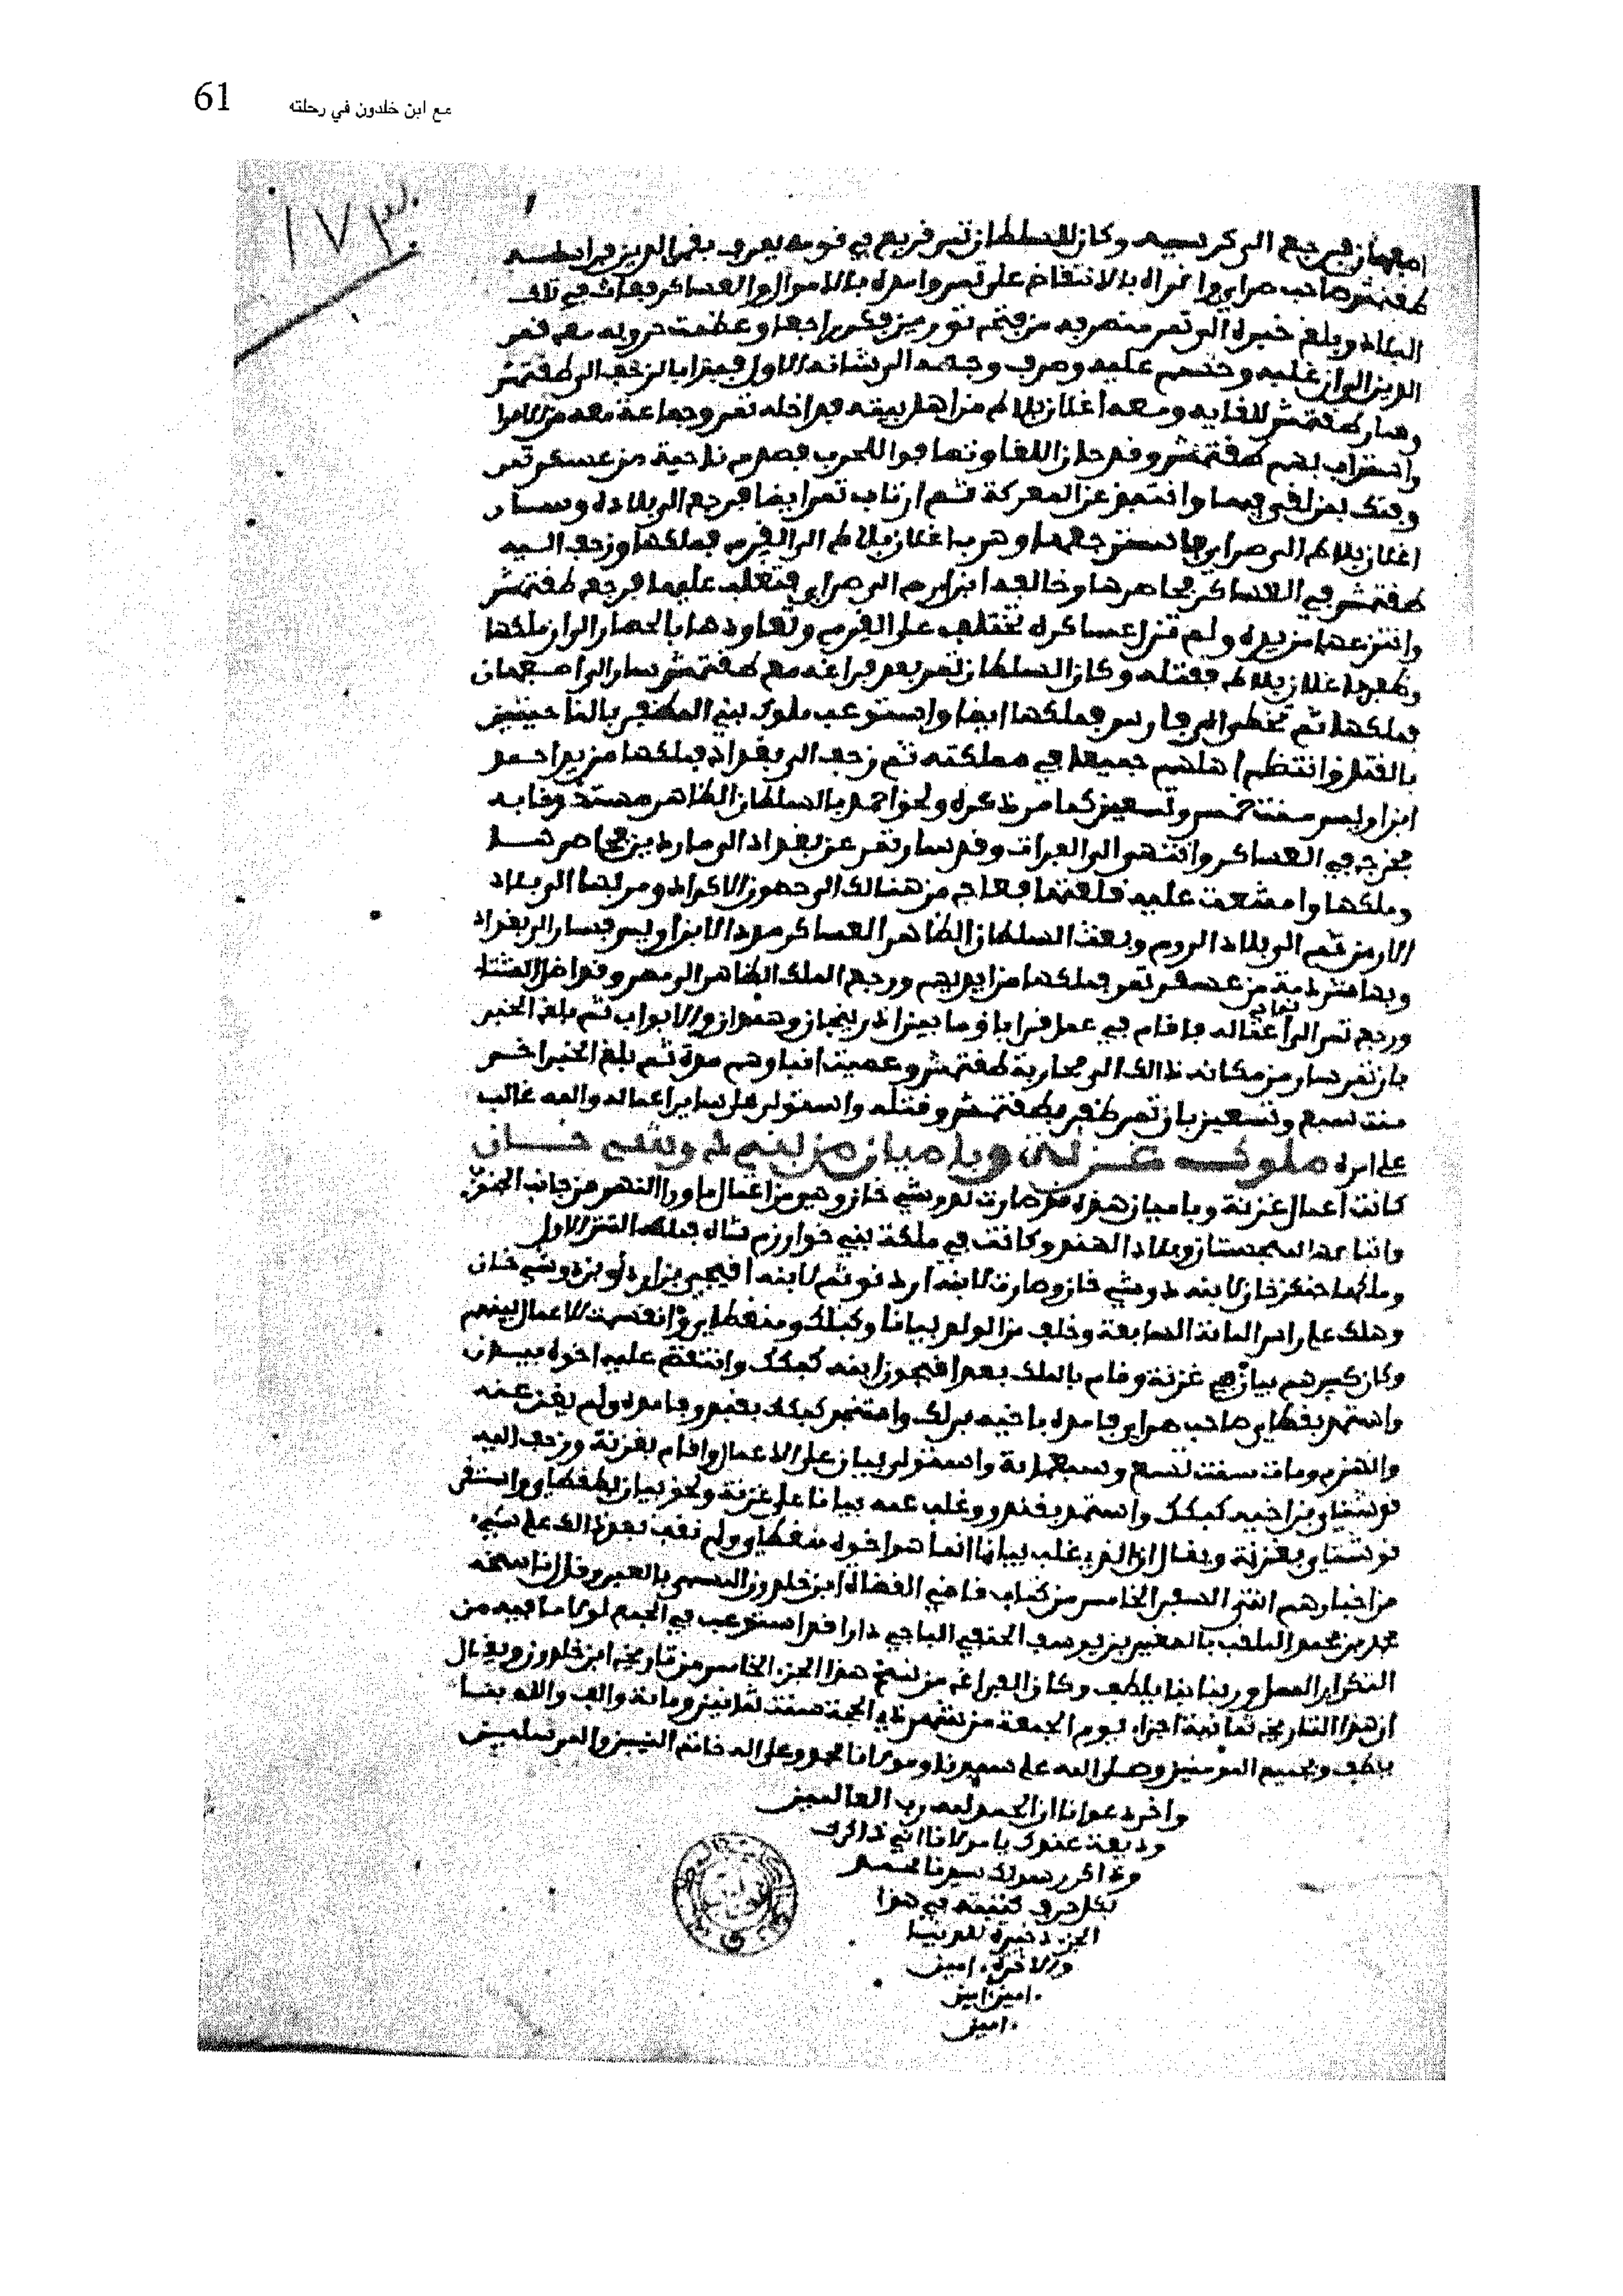 61 مع ابن خلدون في رحلته
اصبهان فيرجع الى كرسيه وكان للسلطان تمر قريع في قومه يعرف بقمر الدين فراسله
طقتمش صاحب صراي واغراه بالانتقاض على تمر وامده بالاموال والعساكر فعاث في تلك
البلاد وبلغ خبره الى تمر منصرفه من فتح توريز فكر راجعا وعظمت حروبه مع قمر
الدين الى ان غلبه وحسم عليه وصرف وجهه الى شانه الاول فبدا بالزحف الى طقتمش
وسار طقتمش للقايه ومعه اغلان بلاط من اهل بيته فداخله تمر وجماعة معه من الامرا
واستراب بهم طقتمش وقد حان اللقا وتصافوا للحرب فصدم ناحية من عسكر تمر
وفتك بمن لقي فيها وانتبذ عن المعركة ثم ارتاب تمر ايضا فرجع الى بلاده وسار
اغلان بلاط الى صراي فاسترجعها وهرب اغلان بلاط الى القرم فملكها وزحف اليه
طقتمش في العساكر فحاصرها وخالفه ارص الى صراي فتغلب عليها فرجع طقتمش
وانتزعها من يده ولم تزل عساكره تختلف على القرم وتعاودها بالحصار الى ان ملكها
وظفر باغلان بلاط فقتله وكان السلطان تمر بعد فراغه مع طقتمش سار الى اصبهان
فملكها ثم تخطى الى فارس فملكها ايضا واستوعب ملوك بني المظفر بالناحيتين
بالقتل وانتظم اهلهم جميعا في مملكته ثم زحف الى بغداد فملكها من يد احمد
ابن اويس سنت خمس وتسعين كما مر ذكره ولحق احمد بالسلطان الظاهر مستجدا به
فخرج في العساكر وانتهى الى الفرات وقد سار تمر عن بغداد الى ماردين فحاصرها
وملكها وامتنعت عليه قلعتها فعاج من هنالك الى حصون الاكراد ومر بها الى بلاد
الارمن ثم الى بلاد الروم وبعث السلطان الظاهر العساكر مددا لابن اويس فسار الى بغداد
وبها شرذمة من عسكر تمر فملكها من ايديهم ورجع الملك الظاهر الى مصر وقد اظل الشتا
ورجع تمر الى اعماله فاقام في عمل قراباق ما بين اذربيجان وهمدان والابواب ثم بلغ الخبر
بان تمر سار من مكانه ذالك الى محاربة طقتمش وعميت انباوهم مدة ثم بلغ الخبر اخر
سنت سبع وتسعين بان تمر ظفر بطقتمش وقتله واستولى على ساير اعماله والله غالب
على امره ملوك غزنة وباميان من بني دوشي خان
كانت اعمال غزنة وباميان هذه قد صارت لدوشي خان وهي من اعمال ما ورا النهر من جانب الجنوب
واتاخمها سجستان وبلاد الهند وكانت في ملكة بني خوارزم شاه فملكها التتر الاول
وملكها جنكز خان لابنه دوشي خان وصارت لابنه اردنو ثم لابنه انبجي بن اردنو بن دوشي خان
وهلك على راس المائة السابعة وخلف من الولد بيانا وكبلك ومنغطاي وانقسمت الاعمال بينهم
وكان كبيرهم بيان في غزنة وقام بالملك بعد انبجي ابنه كبلك وانتقض عليه اخوه بيان
واستمد بطغطاي صاحب صراي فامده باخيه برلك واستنجد كبلك بقنجي فامده ولم يغن عنه
وانهزم ومات سنت تسع وسبعماية واستولى بيان على الاعمال واقام بغزنة وزحف اليه
قوشناي بن اخيه كبلك واستمد بقنجي وغلب عمه بيانا على غزنة ولحق بيان بطغطاي واستقر
قوشناي بغزنة ويقال ان الذي غلب بيانا انما هو اخوه منغطاي ولم نقف بعد ذالك على شيء
من اخبارهم انتهى السفر الخامس من كتاب قاضي القضاة ابن خلدون المسمى بالعبر وقال ناسخه
محمد بن محمد الملقب بالصغير بن يوسف الحنفي الباجي دارا قد استوعب في الجمع لولا ما فيه من
التكرار الممل وربنا بنا يلطف وكان الفراغ من نسخ هذا الجزء الخامس من تاريخ ابن خلدون ويقال
ان هذا التاريخ ثمانية اجزاء يوم الجمعة من شهر ذي الحجة سنت ثلاثين ومائة والف والله بنا
يلطف وبجميع المومنين وصلى الله على سيدنا ومولانا محمد وعلى اله خاتم النبيين والمرسلين
واخر دعوانا ان الحمد لله رب العالمين
وديعة عندك يا مولانا اني ذاكرك
وذاكر رسولك سيدنا محمد
بكل حرف كتبته في هذا
الجزء ذخيرة للدنيا
والاخرة امين
امين امين
امين